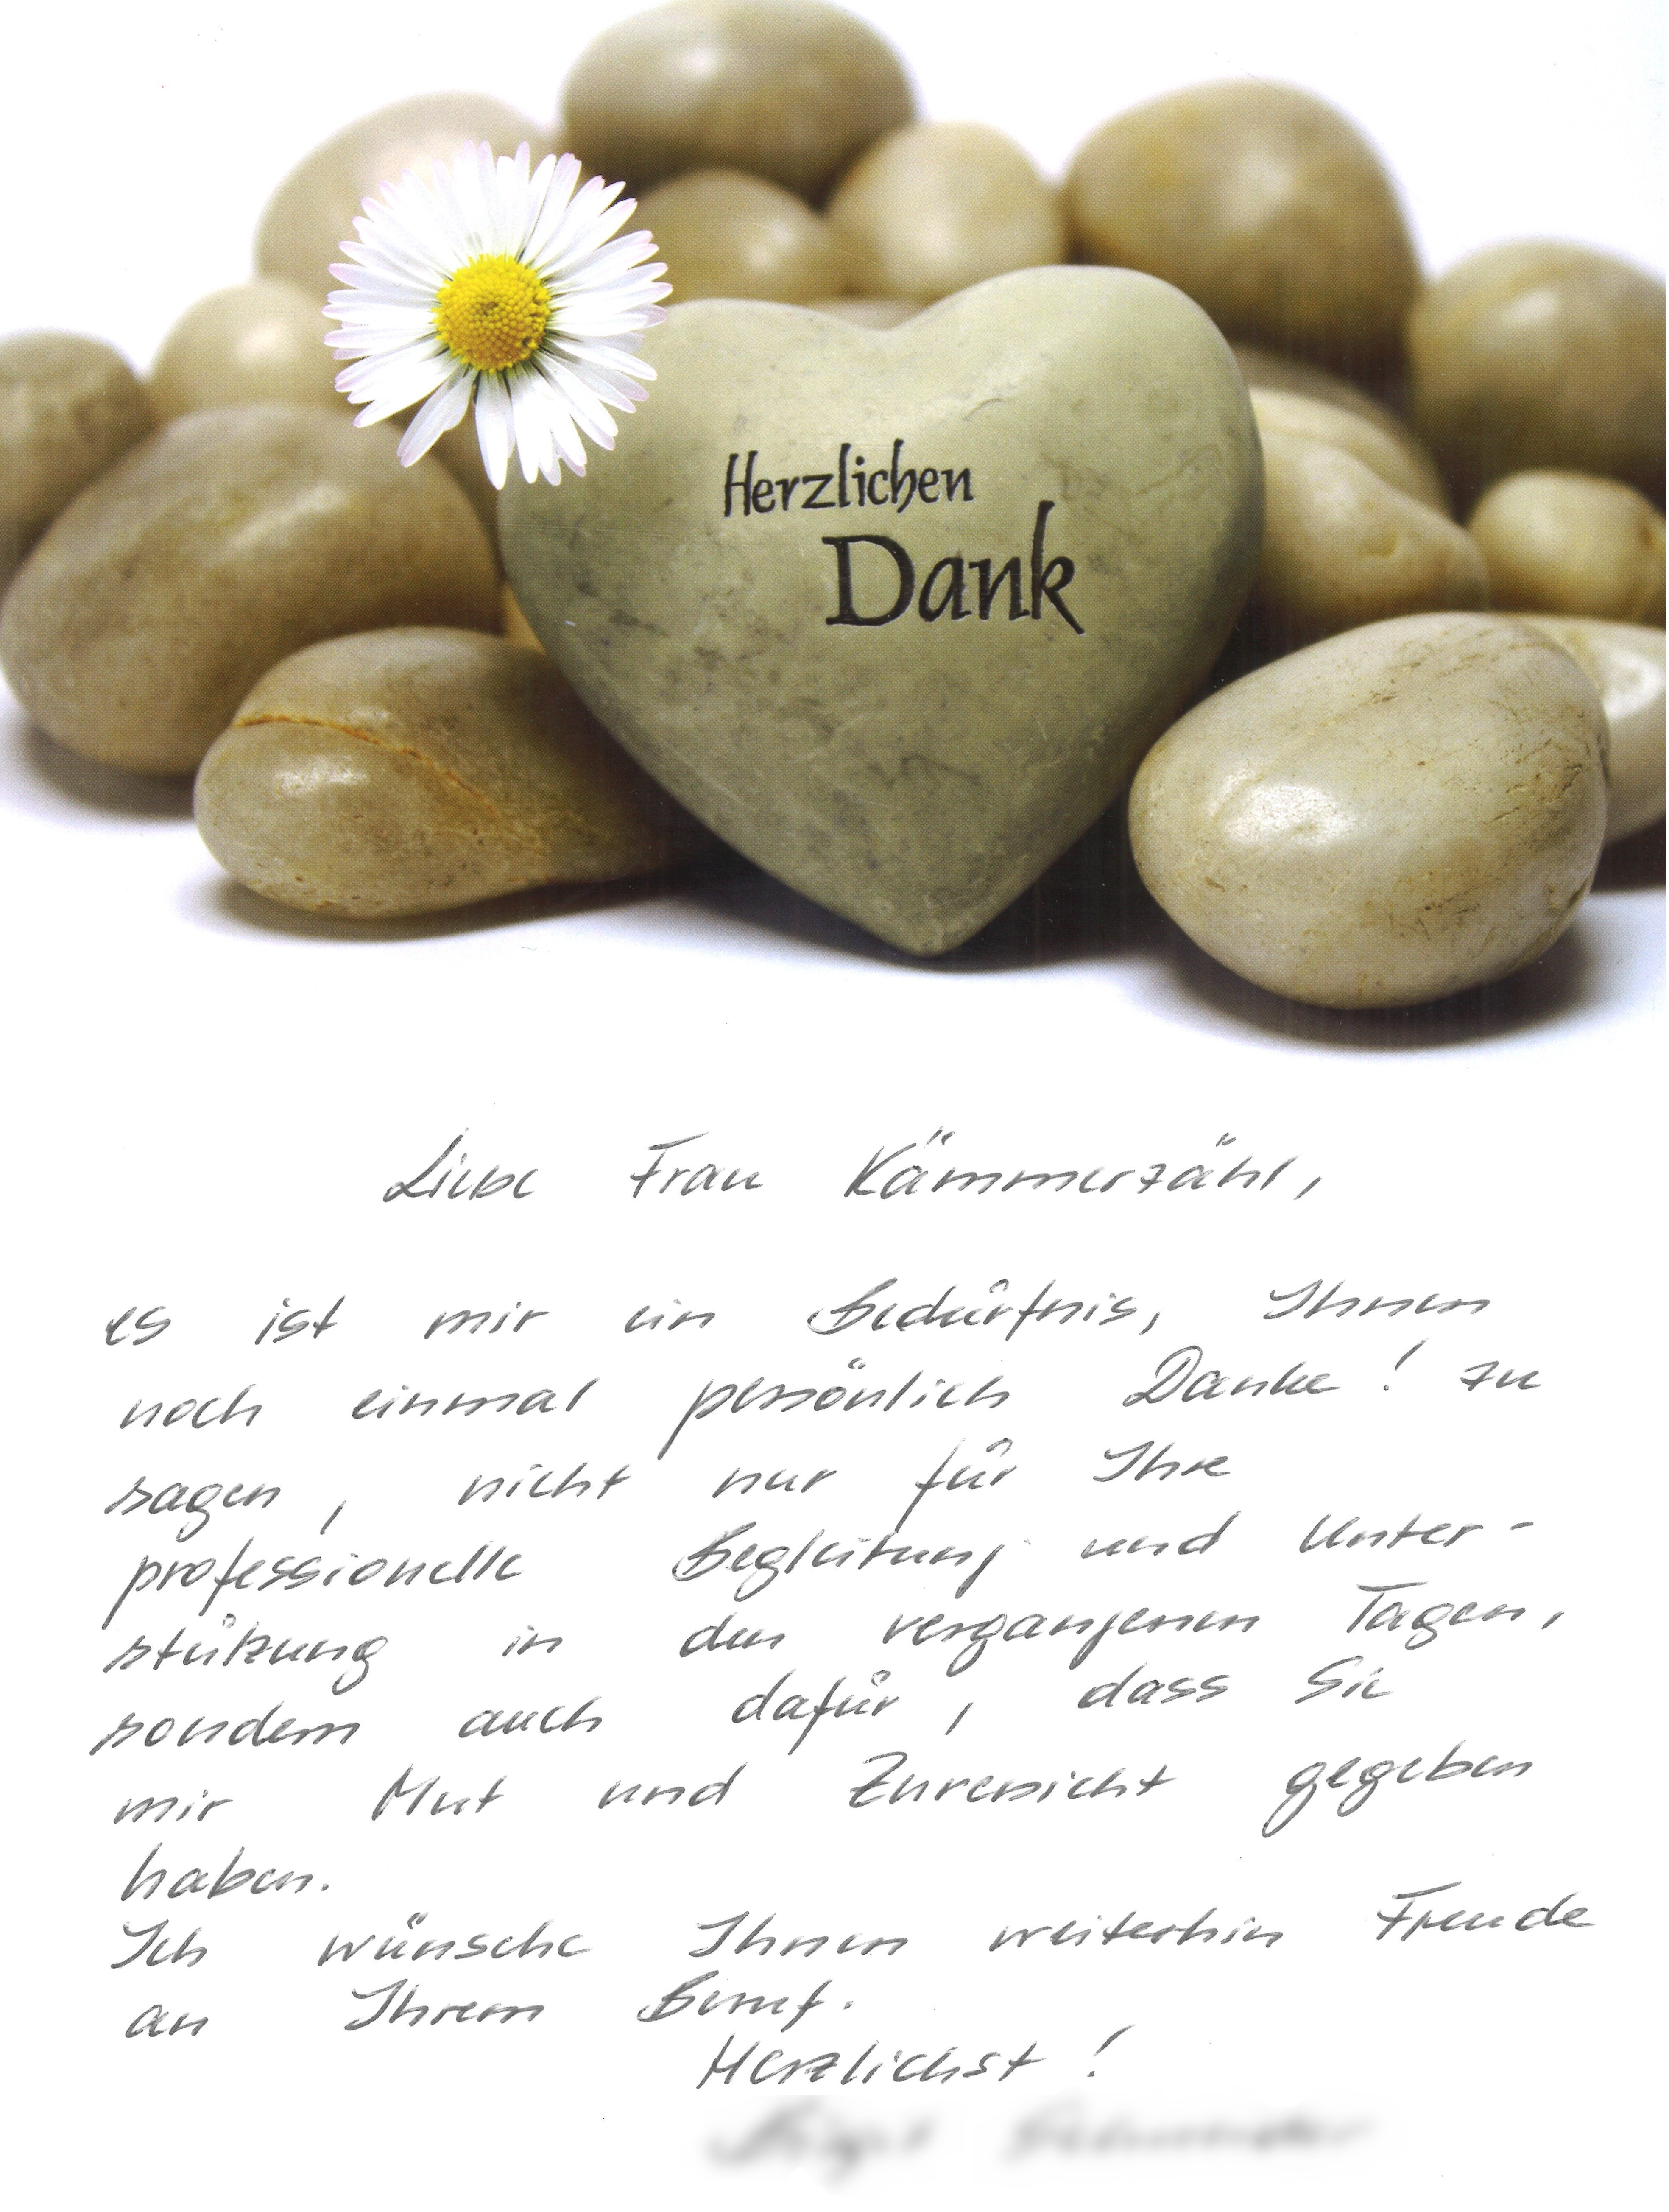 Herzlichen
Dank
Liebe Frau Kämmerzähl,
es ist mir ein Bedürfnis, Ihnen
noch einmal persönlich Danke! zu
sagen, nicht nur für Ihre
professionelle Begleitung und Unter-
stützung in den vergangenen Tagen,
sondern auch dafür, dass Sie
mir Mut und Zuversicht gegeben
haben.
Ich wünsche Ihnen weiterhin Freude
an Ihrem Beruf.
Herzlichst!